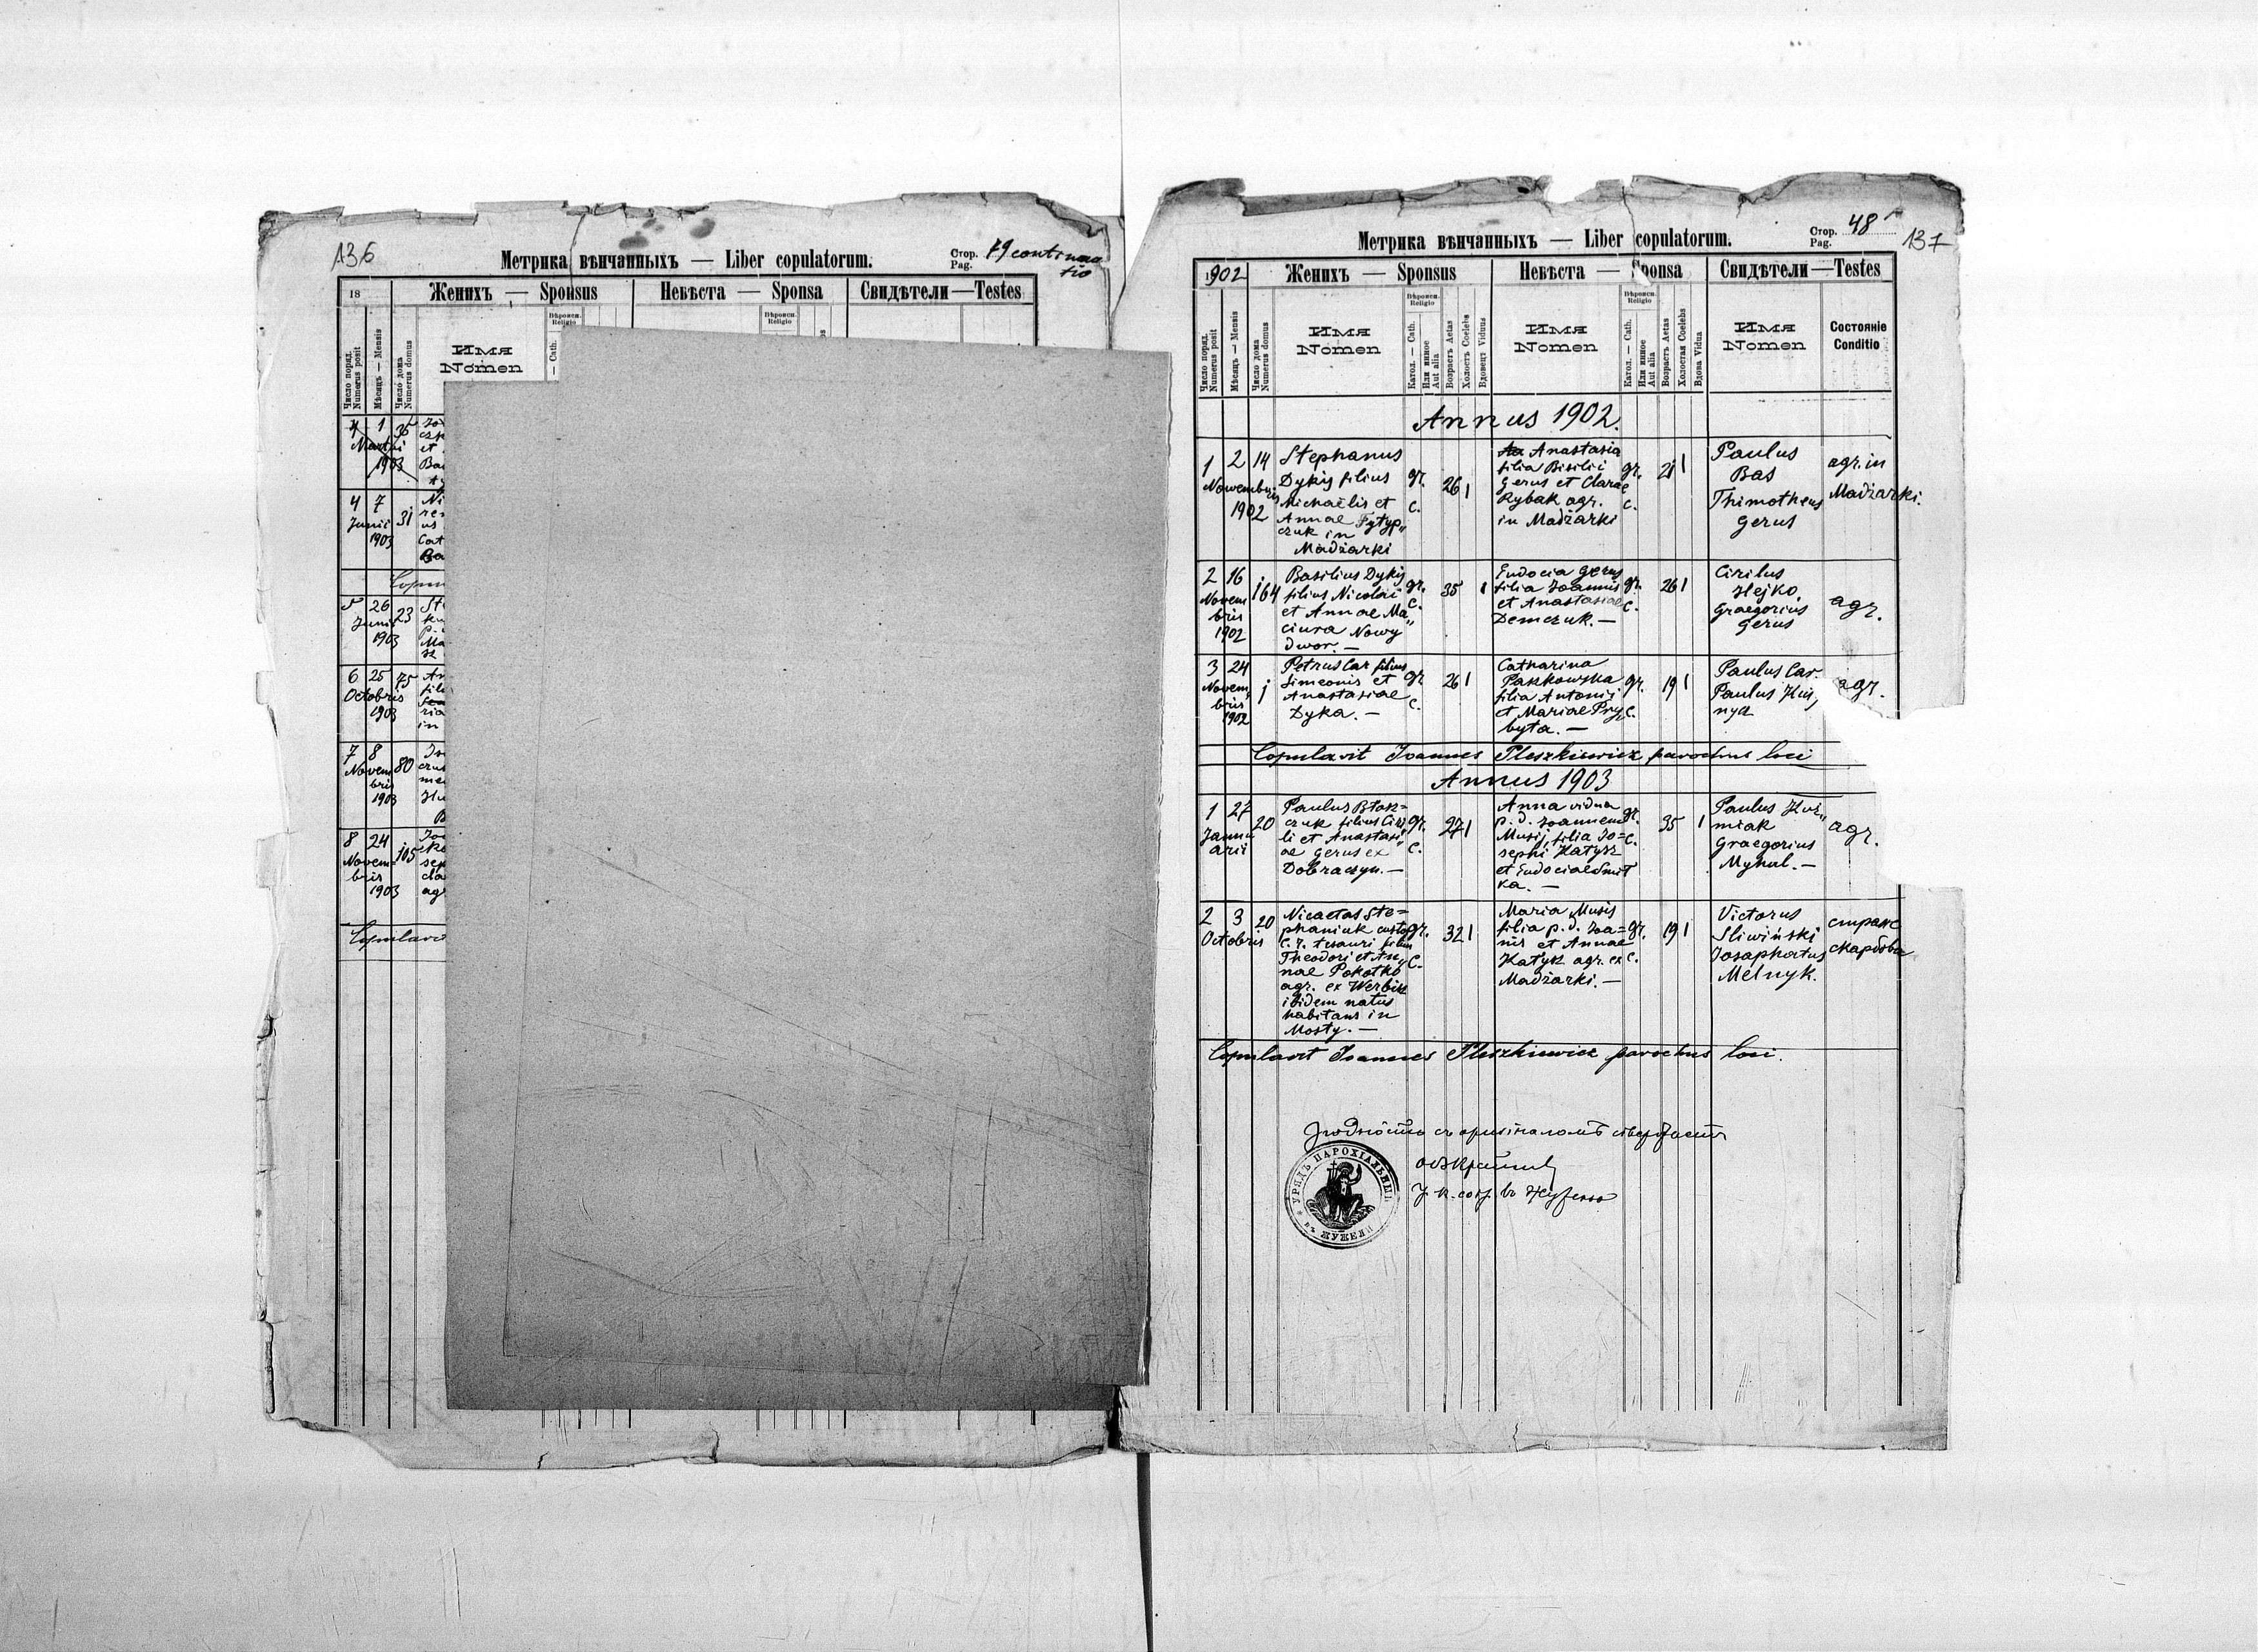 136
Метрика вѣнчанныхъ — Liber copulatorum.
Стор. Pag. 79 continuatio
18
Женихъ — Sponsus
Невѣста — Sponsa
Свидѣтели — Testes
Число поряд. Numerus posit
Мѣсяцъ — Mensis
Число дома Numerus domus
Имя
Nomen
Вѣроисп. Religio
— Cath.
Вѣроисп. Religio
4 1 35
Martii
1903
4 7 31
Junii
1903
5 26 23
Junii
1903
6 25 75
Octobris
1903
7 8 80
Novem
bris
1903
8 24 105
Novem=
bris
1903
137
Метрика вѣнчанныхъ — Liber copulatorum.
Стор. Pag. 48
1902
Женихъ — Sponsus
Невѣста — Sponsa
Свидѣтели — Testes
Число поряд. Numerus posit
Мѣсяцъ — Mensis
Число дома Numerus domus
Имя
Nomen
Вѣроисп. Religio
Катол. — Cath.
Или инное Aut alia
Возрастъ Aetas
Холостъ Coelebs
Вдовецъ Viduus
Имя
Nomen
Вѣроисп. Religio
Катол. — Cath.
Или инное Aut alia
Возрастъ Aetas
Холостая Coelebs
Вдова Vidua
Имя
Nomen
Состояніе
Conditio
Annus 1902.
1 2 14
Nowembris
1902
Stephanus
Dykij filius
Michaëlis et
Annae Fytyp„
czuk in
Madżarki
gr.
c.
26 1
Anastasia
filia Bisilii
Gerus et Clarae
Rybak agr.
in Madżarki
gr.
c.
21 1
Paulus
Bas
Thimotheus
Gerus
agr. in
Madżarki.
2 16 164
Novem
bris
1902
Basilius Dykij
filius Nicolai
et Annae Ma„
ciura Nowy
dwor. —
gr.
c.
35 1
Eudocia Gerus
filia Joannis
et Anastasiae
Demczuk. —
gr.
c.
26 1
Cirilus
Hejko.
Graegorius
Gerus
agr.
3 24 1
Novem„
bris
1902
Petrus Car filius
Simeonis et
Anastasiae
Dyka. —
gr.
c.
26 1
Catharina
Pakkowska
filia Antonij
et Mariae Pry„
byta. —
gr.
c.
19 1
Paulus Car.
Paulus
agr.
Copulavit Joannes Pleszkiewicz parochus loci
Annus 1903
1 27 20
Janu
arii
Paulus Błasz=
czuk filius Ciri„
li et Anastasi„
ae Gerus ex
Dobraczyn. —
gr.
c.
27 1
Anna vidua
p. d. Joannem
Musij, filia Jo=
sephi Katysz
et Eudociae Smit
ka. —
gr.
c.
35 1
Paulus Kuź„
miak
Graegorius
Myhal. —
agr.
2 3 20
Octobris
Nicaetas Ste=
phaniuk custos
c. r. tesauri filius
Theodori et An„
nae Pokotko
agr. ex Werbiż
ibidem natus
habitans in
Mosty. —
gr.
c.
32 1
Maria Musis
filia p. d. Joa=
nis et Annae
Katysz agr. ex
Madżarki. —
gr.
c.
19 1
Victorus
Sliwiński
Josaphatus
Melnyk.
скарбова
Copulavit Joannes Pleszkiewicz parochus loci.
УРЯДЪ ПАРОХІАЛЬНЫЙ
ВЪ ЖУЖЕЛИ